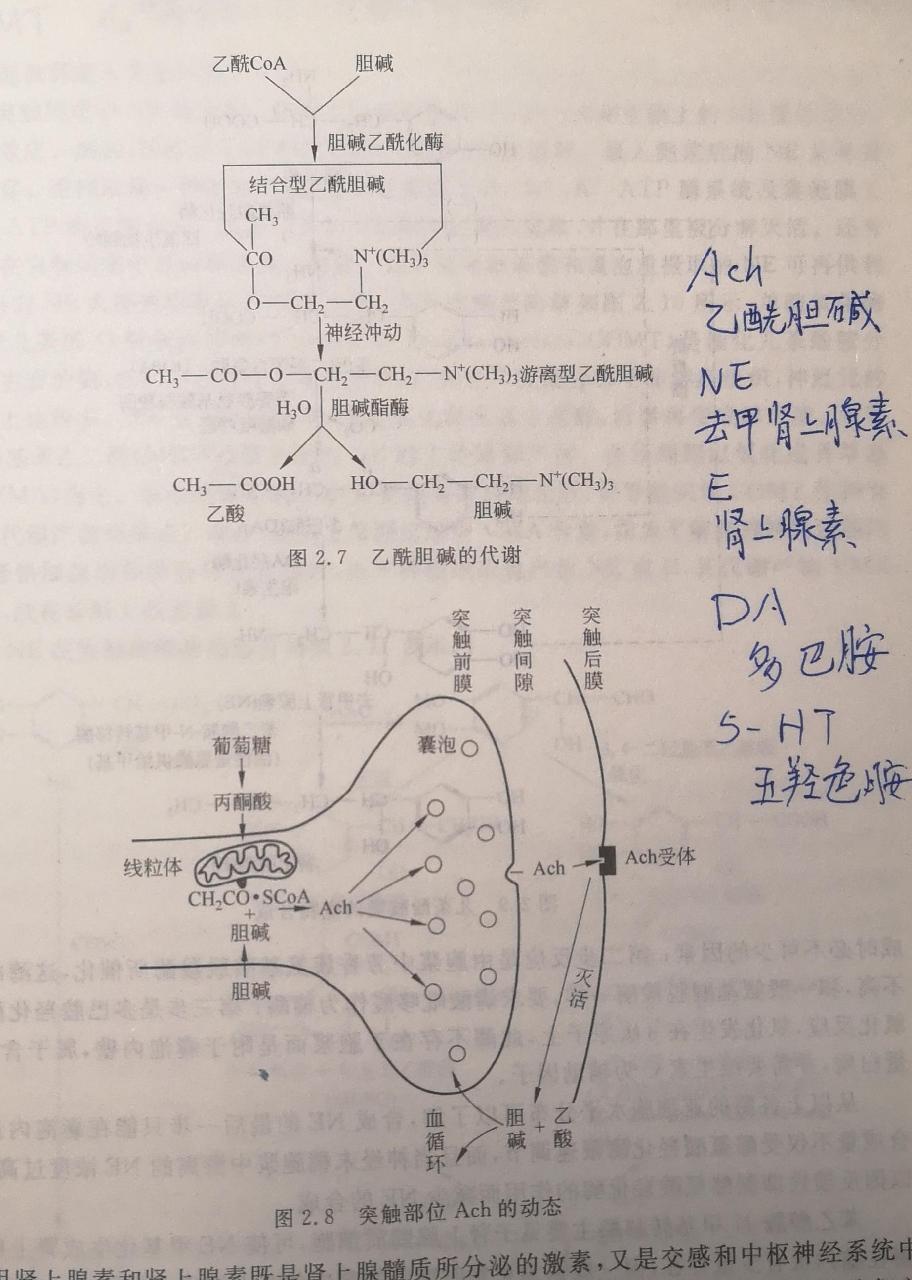 乙酰CoA 胆碱
胆碱乙酰化酶
结合型乙酰胆碱
CH₃
CO N⁺(CH₃)₃
O—CH₂—CH₂
神经冲动
CH₃—CO—O—CH₂—CH₂—N⁺(CH₃)₃游离型乙酰胆碱
H₂O 胆碱酯酶
CH₃—COOH HO—CH₂—CH₂—N⁺(CH₃)₃
乙酸 胆碱
图 2.7 乙酰胆碱的代谢
Ach
乙酰胆碱
NE
去甲肾上腺素
E
肾上腺素
DA
多巴胺
5-HT
五羟色胺
突触前膜
突触间隙
突触后膜
囊泡
葡萄糖
丙酮酸
线粒体
CH₂CO•SCoA
+
胆碱
胆碱
Ach
Ach
Ach受体
灭活
胆碱 + 乙酸
血循环
图 2.8 突触部位 Ach 的动态
甲肾上腺素和肾上腺素既是肾上腺髓质所分泌的激素,又是交感和中枢神经系统中